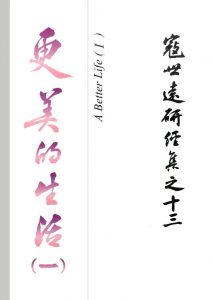 寇世遠研經集之十三
A Better Life ( I )
更美的生活(一)